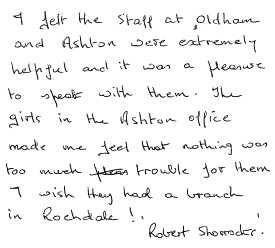 I felt the staff at Oldham
and Ashton were extremely
helpful and it was a pleasure
to speak with them. The
girls in the Ashton office
made me feel that nothing was
too much trouble for them
I wish they had a branch
in Rochdale !.
Robert Shorrocks.